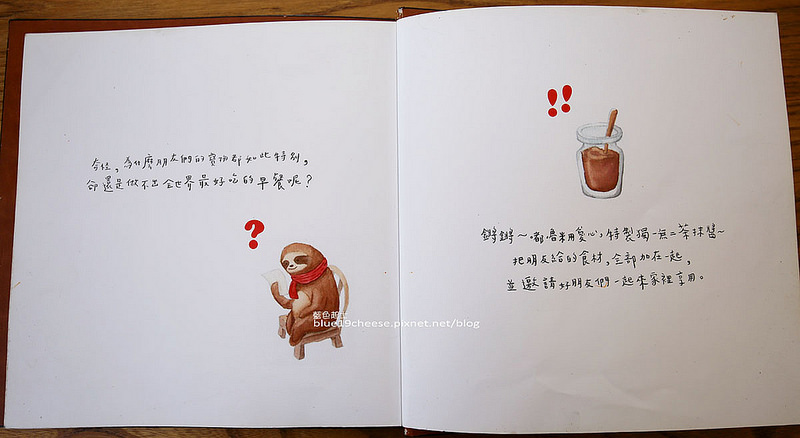 奇怪,為什麼朋友們的寶物都如此特別,
卻還是做不出全世界最好吃的早餐呢?
?
藍色起士
blue19cheese.pixnet.net/blog
!!
鏘鏘~嘟魯用愛心,特製獨一無二茶抹醬~
把朋友給的食材,全部加在一起,
並邀請好朋友們一起來家裡享用。